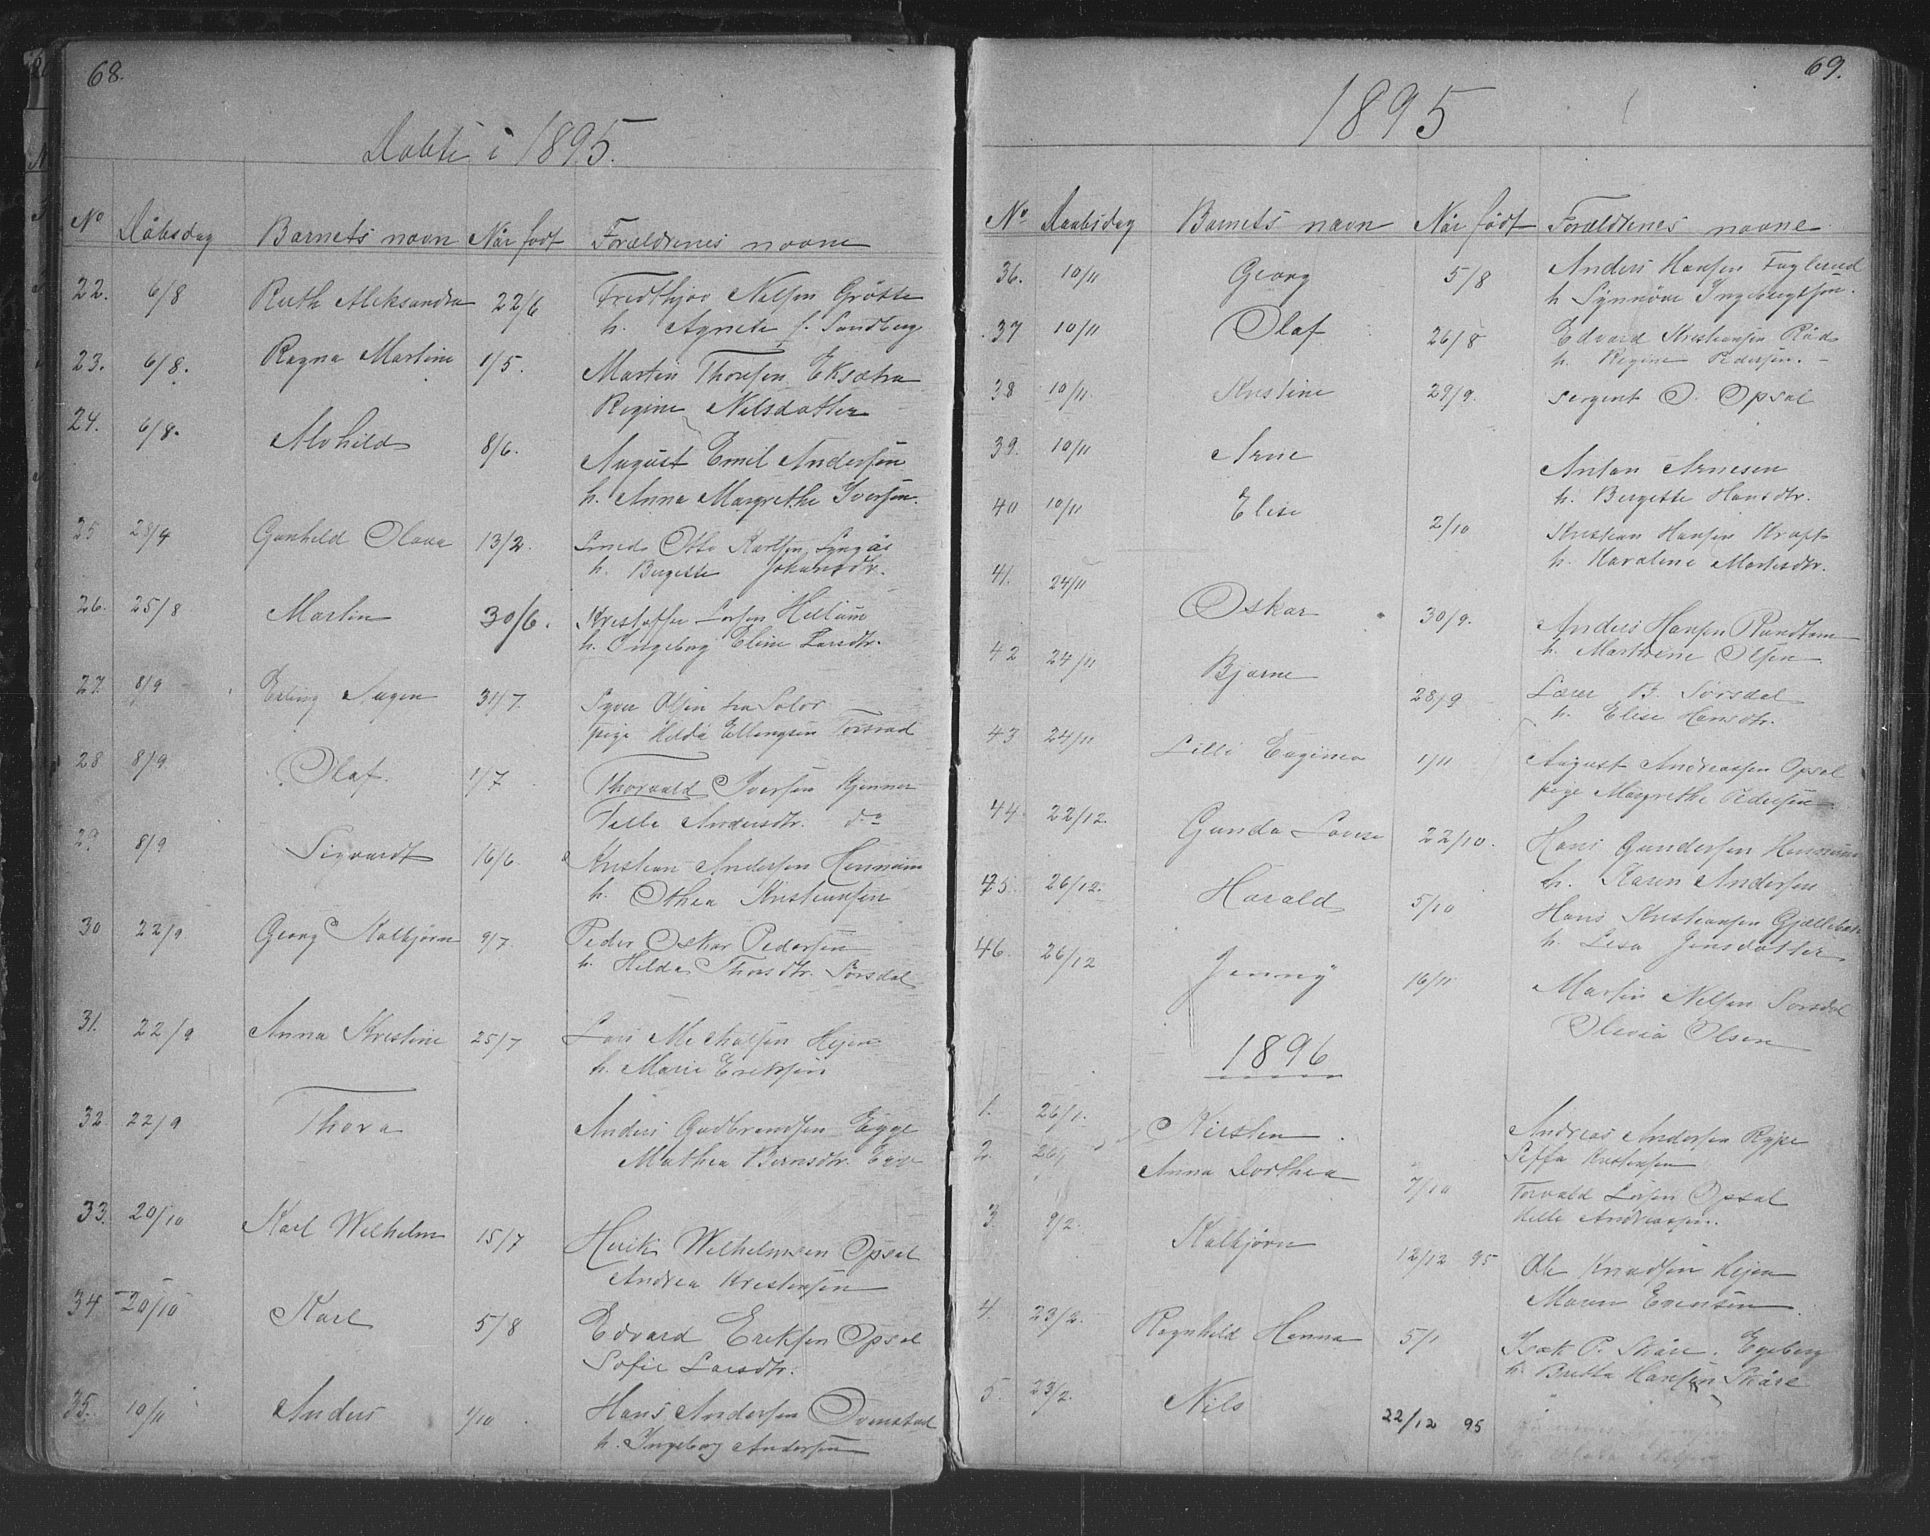 68.
Døbte i 1895.
No Dåbsdag Barnets navn Når født Forældrenes navne
22. 6/8 Ruth Aleksandra 22/6 Fredthjov Nilsen Grøtte
h. Agnete f. Sandberg
23. 6/8. Ragna Martine 1/5. Martin Thoresen Eksætra
Regine Nilsdatter
24. 6/8. Alvhild 8/6. August Emil Andersen
h. Anna Margrethe Iversen.
25 Gunhild Olava 13/2. Smed Otto Karlsen
h. Bergette Johansdtr.
26. 25/8 Martin 30/6. Kristoffer Larsen Hellum
h. Ingeborg Eline Larsdtr.
27. 8/9 Erling Hagen 31/7. Syver Olsen fra Solør
pige Hilda Ellingsen Torsrud
28 8/9 Olaf. 1/7 Thorvald Iversen Kjenner
Pelle Andersdtr. do
29 8/9 Sigvardt 16/6. Kristian Andersen Hennum
h. Othea Kristiansen
30 22/9 Georg Kolbjørn 9/7. Peder Oskar Pedersen
h. Hilda Thorsdtr. Sørsdal
31. 22/9 Anna Kristine 25/7 Lars Michalsen Hejen
h. Marie Eriksen
32 22/9 Thora Anders Gudbrandsen Egge
Mathea Bernsdtr. Egge
33. 20/10 Karl Wilhelm 15/7 Henrik Wilhelmsen Opsal
Andrea Kristensen
34 20/10 Karl 5/8 Edvard Eriksen Opsal
Sofie Larsdtr.
35. 10/11 Anders 1/10 Hans Andersen Ovnstad
h. Ingeborg Andersen
69.
1895
No Daabsdag Barnets navn Når født Forældrenes navne
36. 10/11 Georg 5/8 Anders Hansen Fuglerud
h. Synnøve Ingebregtsen.
37 10/11 Olaf 26/8 Edvard Kristiansen Rød
h. Regine Pedersen.
38 10/11. Kristine 29/9. Sergent O. Opsal
39. 10/11 Arne Anton Arnesen
h. Bergette Hansdtr.
40 10/11 Elise 2/10 Kristian Hansen Kraft
h. Karoline Martinsdtr.
41. 24/11 Oskar 30/9. Anders Hansen Rundtom
h. Marthine Olsen
42 24/11 Bjarne 28/9 Lærer B. Sørsdal
h. Elise Hansdtr.
43 24/11 Lilli Euginea 1/11 August Andreassen Opsal
pige Margrethe Pedersen
44 22/12. Gunda Lovise 22/10. Hans Gundersen Hennum
h. Karen Andersen
45 26/12. Harald 5/10 Hans Kristiansen Gjællebæk
h. Lisa Jensdatter
46. 26/12 Jenny 16/11 Martin Nilsen Sørsdal
Olevia Olsen
1896
1. 26/1. Kirsten Andreas Andersen Rype
Kristensen
2. 26/1 Anna Dorthea 7/10 Torvald Larsen Opsal
Andreassen.
3. 9/2. Kolbjørn 12/12 95 Ole Knudsen Hejen
Maren Evensen
4. 23/2. Ragnhild Hanna 5/1 Isak P. Skåre. Egeberg
h. Britta Hansen Skåre
5. 23/2. Nils 22/12 95